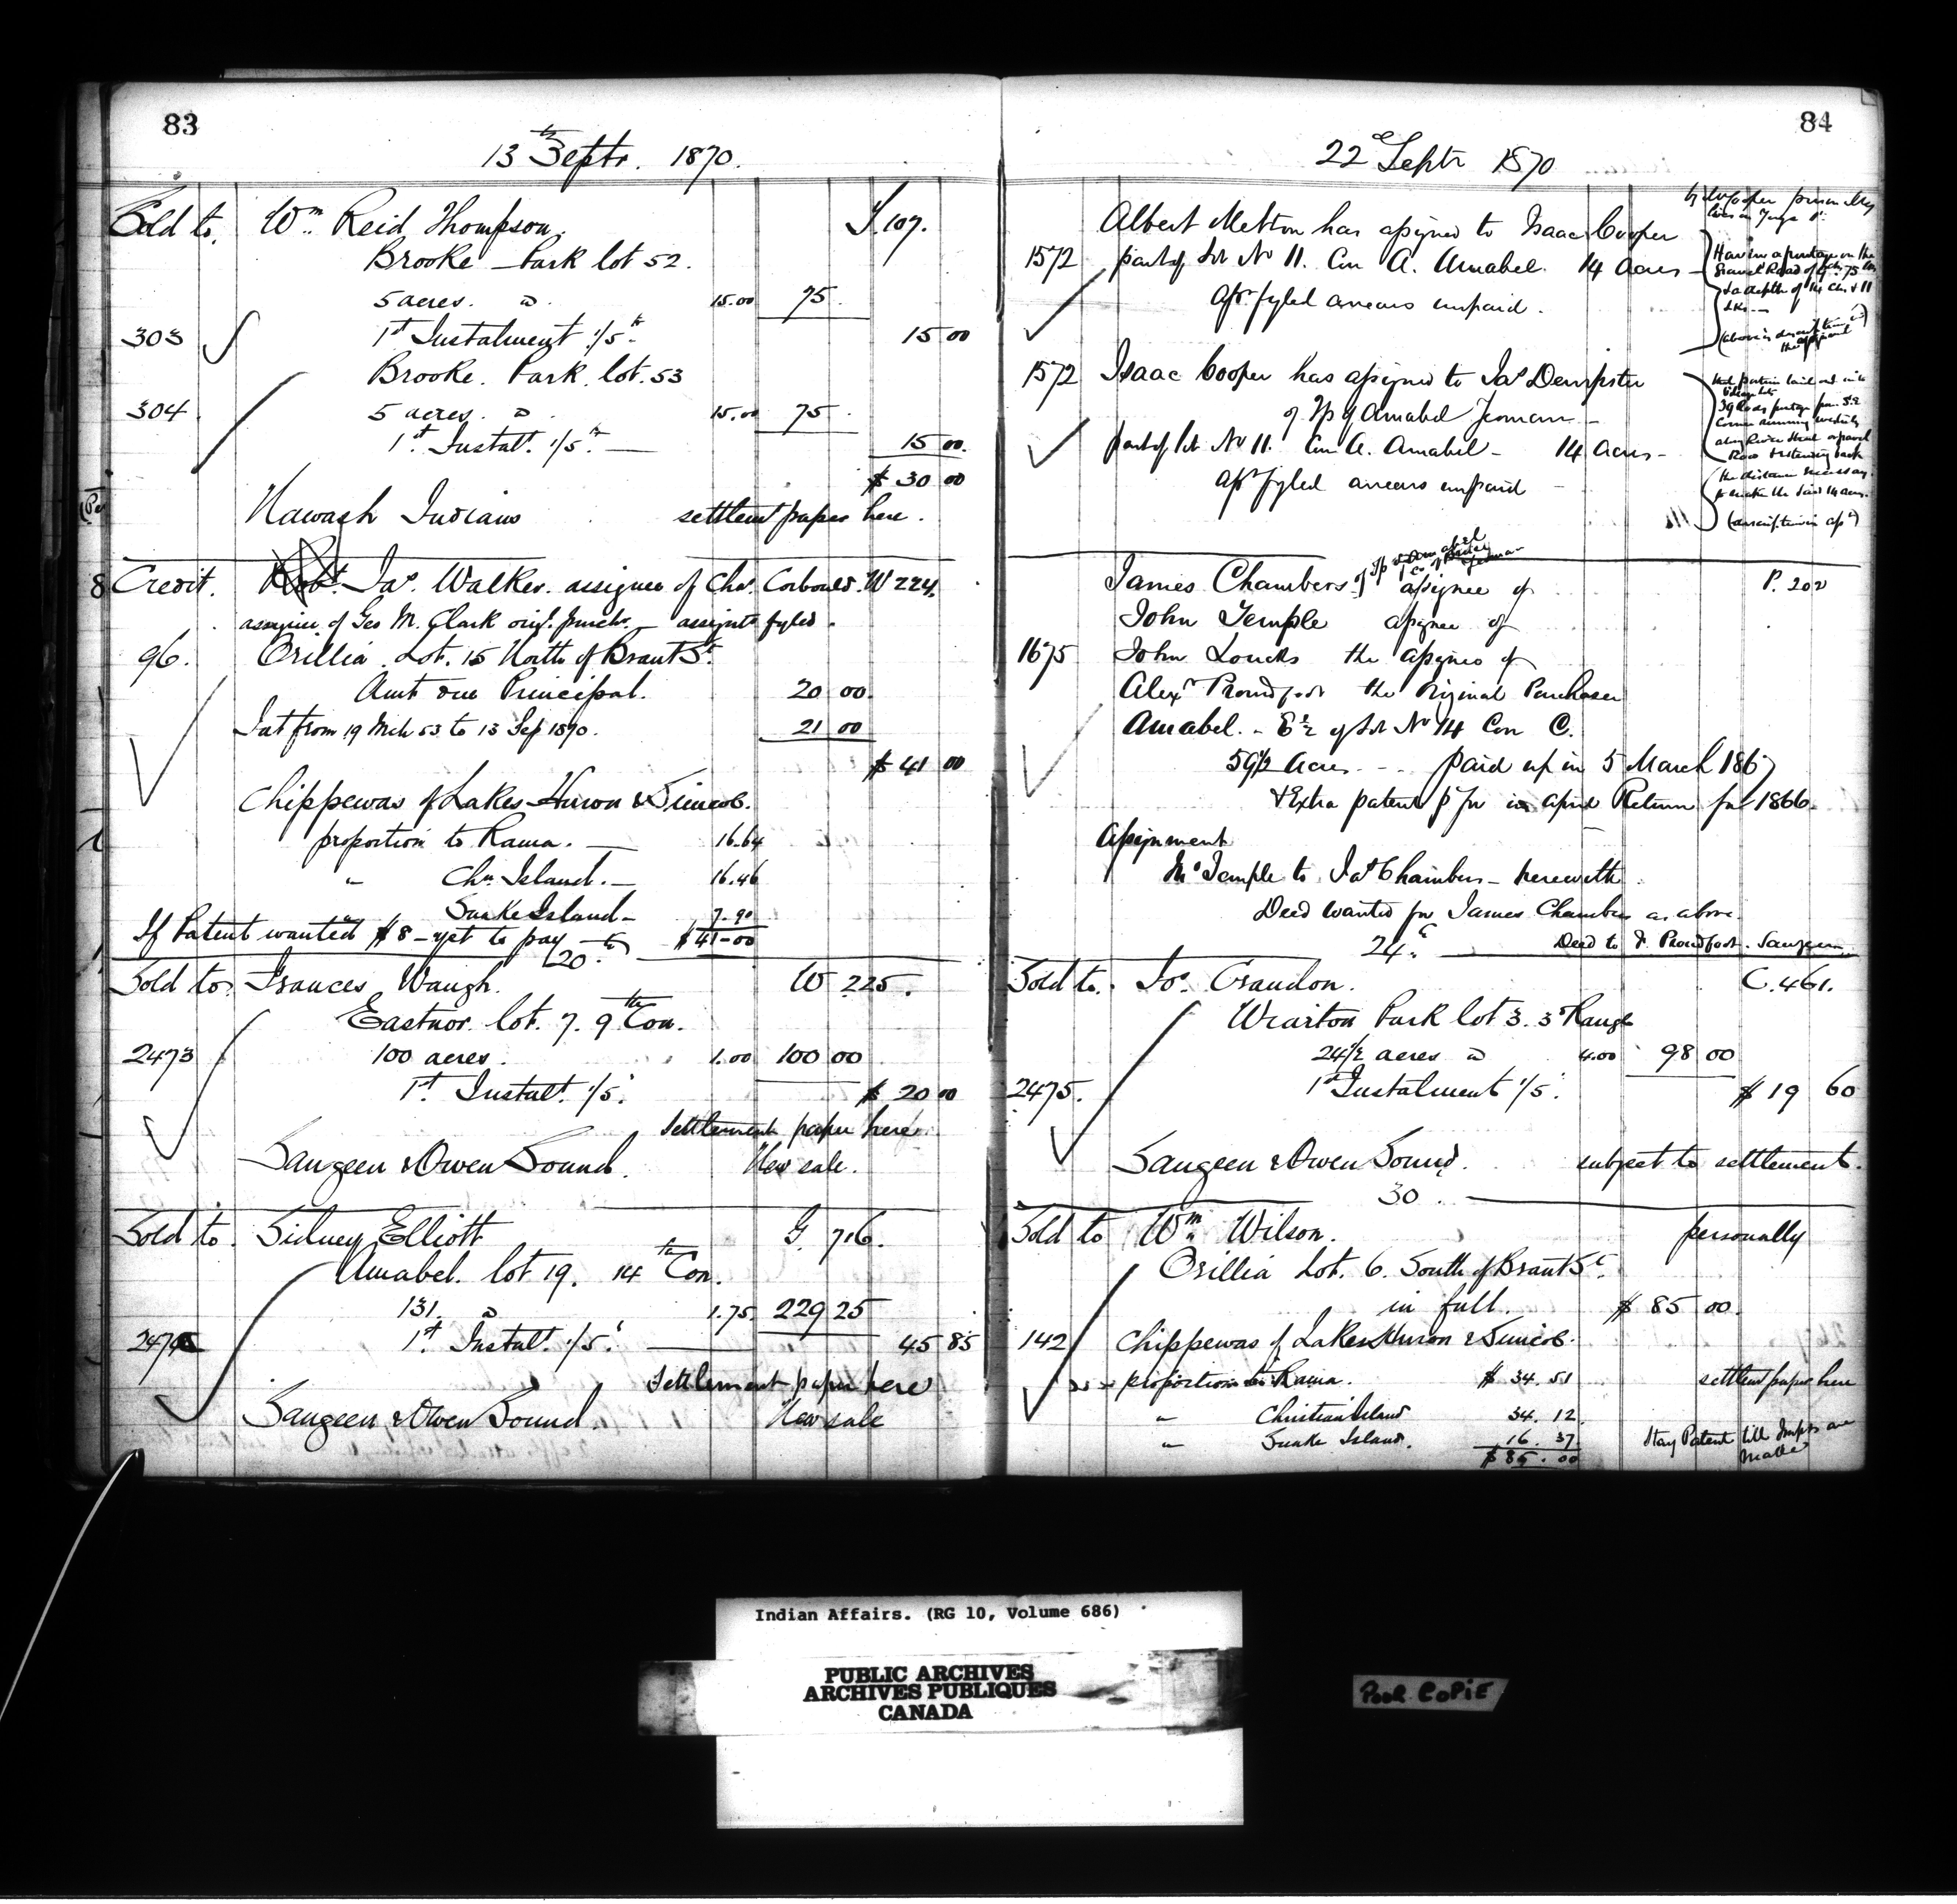 83
13th Septr. 1870.
Sold to. Wm. Reid Thompson. T. 107.
Brooke Park lot 52.
5 acres. @ 15.00 75
303 1st Instalment 1/5th 15 00
Brooke. Park. lot. 53
304 5 acres. @ 15.00 75
1st Instalt. 1/5th 15 00.
$ 30 00
Nawash Indians settlemt paper here.
Credit. Jas. Walker. assignee of Chs. Corbould. W 224.
assignee of Geo M. Clark orig. purchr. — assignts fyled.
96. Orillia. Lot. 15 North of Brant St.
Amt due Principal. 20 00.
Int from 19 Mch 53 to 13 Sep 1870. 21 00
$ 41 00
Chippewas of Lakes Huron & Simcoe.
proportion to Rama. — 16.64
" Chn. Island. — 16.46
Snake Island — 7.90
If Patent wanted $8 — yet to pay $41-00
20th
Sold to. Frances Waugh. W 225.
Eastnor. lot. 7. 9th Con.
2473 100 acres. 1.00 100 00
1st. Instalt. 1/5. $ 20 00
Settlement paper here.
Saugeen & Owen Sound. New sale.
Sold to. Sidney Elliott G. 716.
Amabel. lot 19. 14th Con.
131. @ 1.75. 229 25
1st. Instalt. 1/5. 45 85
Settlement paper here
Saugeen & Owen Sound. New sale
84
22d Septr 1870
Albert Melton has assigned to Isaac Cooper
1572 part of Lot No 11. Con A. Amabel. 14 Acres —
asst. fyled arrears unpaid.
1572 Isaac Cooper has assigned to Jas Dempster
of Tp of Amabel Yeoman —
part of lot No 11. Con A. Amabel — 14 Acres —
asst fyled arrears unpaid
James Chambers of assignee of P. 202
John Temple assignee of
1675 John Loucks the assignee of
Alexr Proudfoot the Original Purchaser
Amabel. — E½ of Lot No 14 Con C.
59½ Acres — paid up in 5 March 1867
& Extra patent in Return for 1866.
Assignment
Temple to Jas Chambers — herewith
Deed wanted for James Chambers as above.
Deed to Proudfoot. Saugeen
24.
Sold to. Jos. Crandon. C. 461.
Wiarton Park lot 3. 3d Range
24½ acres @ 4.00 98 00
2475. 1st Instalment 1/5. $ 19 60
Saugeen & Owen Sound. subject to settlement.
30.
Sold to Wm. Wilson. personally
Orillia Lot. 6. South of Brant St.
in full. $ 85 00.
142 Chippewas of Lakes Huron & Simcoe.
proportion to Rama. $ 34.51 settlemt paper here
" Christian Island 34.12.
" Snake Island. 16.37
$ 85.00
Stay Patent till Impts are
made
Indian Affairs. (RG 10, Volume 686)
PUBLIC ARCHIVES
ARCHIVES PUBLIQUES
CANADA
POOR COPIE